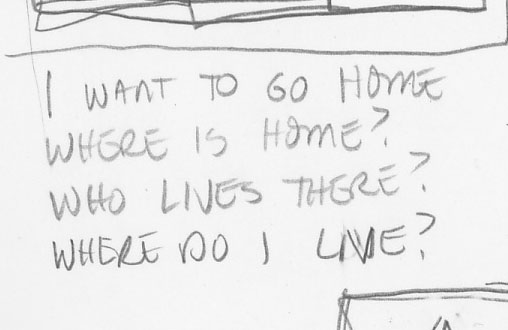 I WANT TO GO HOME
WHERE IS HOME?
WHO LIVES THERE?
WHERE DO I LIVE?